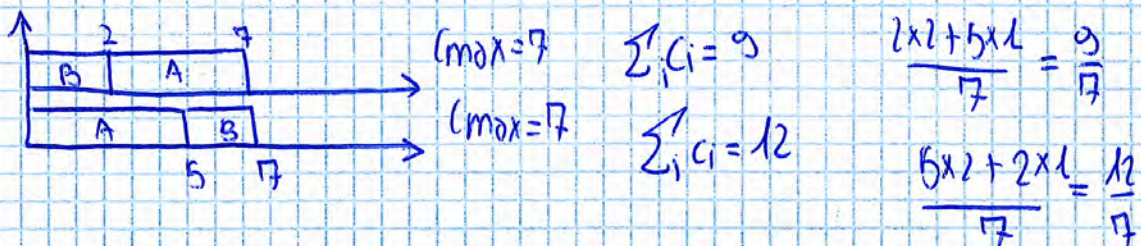 2 7
B A
Cmax=7 ∑i Ci = 9 (2x2+5x1)/7 = 9/7
A B
5 7
Cmax=7 ∑i Ci = 12 (5x2+2x1)/7 = 12/7